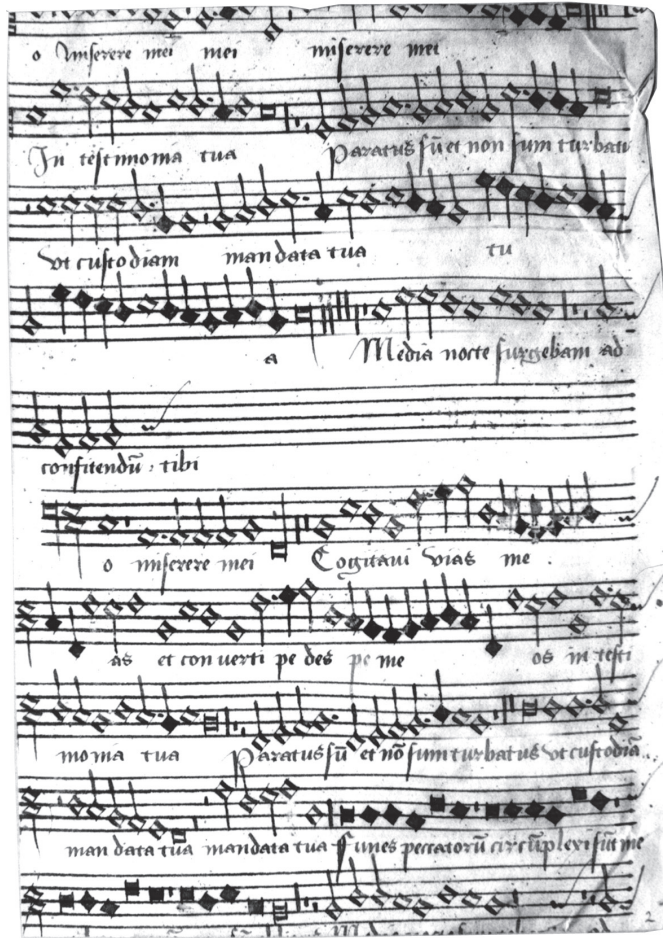 o miserere mei mei miserere mei
In testimonia tua Paratus sū et non sum turbatu
vt custodiam mandata tua tu
a Media nocte surgebam ad
confitendū tibi
o miserere mei Cogitaui vias me
as et conuerti pedes pe me os in testi
monia tua Paratus sū et nō sum turbatus vt custodiā
mandata tua mandata tua Funes peccatorū circūplexi sūt me
2